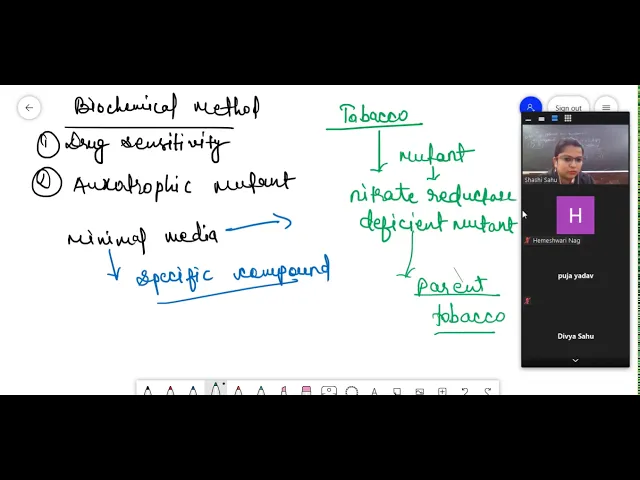 Biochemical method
① Drug sensitivity
② Auxotrophic mutant
Minimal media
specific compound
Tobacco
mutant
nitrate reductase
deficient mutant
Parent
tobacco
Sign out
Shashi Sahu
H
Hemeshwari Nag
puja yadav
Divya Sahu